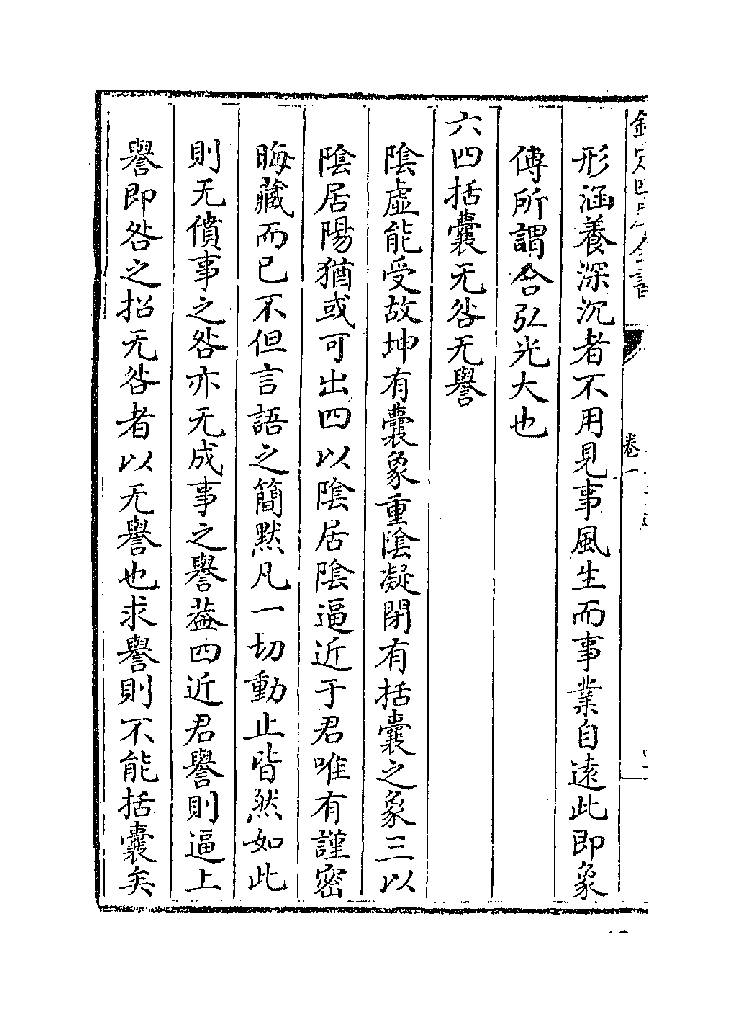 形涵養深沉者不用見事風生而事業自遠此即象
傳所謂含弘光大也
六四括囊无咎无譽
陰虛能受故坤有囊象重陰凝閉有括囊之象三以
陰居陽猶或可出四以陰居陰逼近于君唯有謹密
晦藏而已不但言語之簡默凡一切動止皆然如此
則无僨事之咎亦无成事之譽葢四近君譽則逼上
譽即咎之招无咎者以无譽也求譽則不能括囊矣
卷一